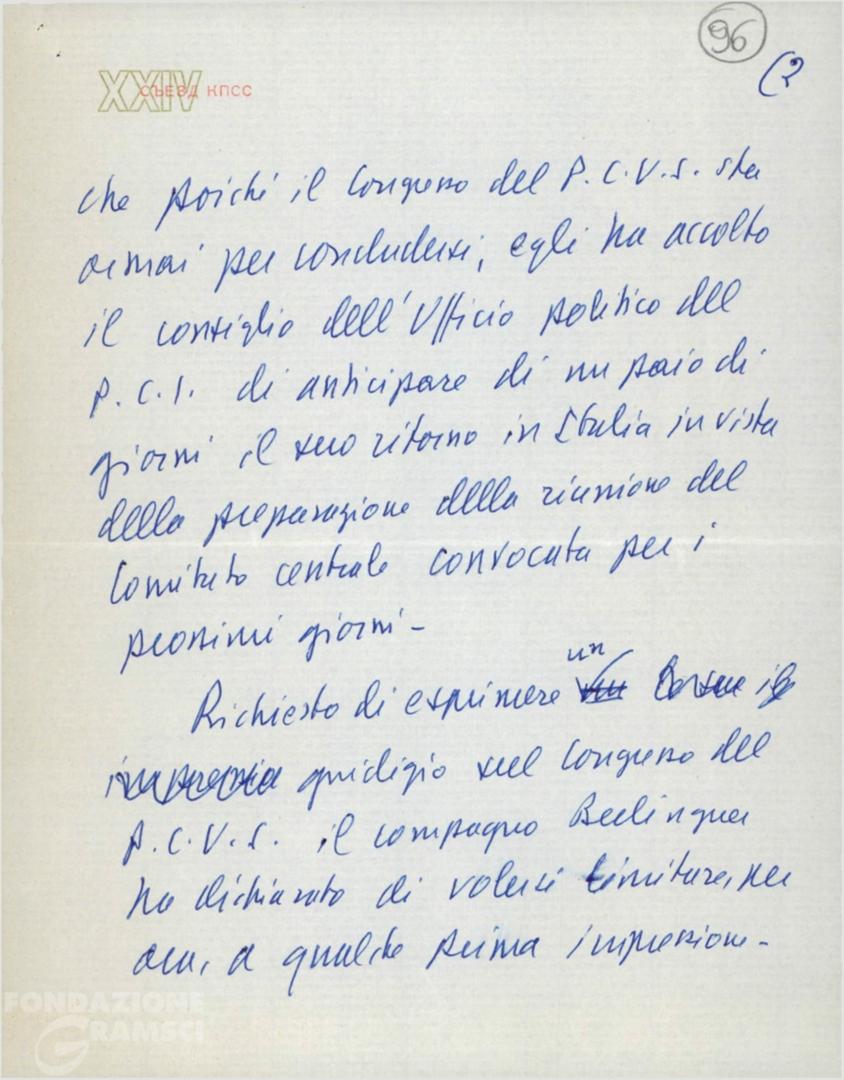 96
(2
XXIV СЪЕЗД КПСС
che poichè il Congresso del P.C.U.S. sta
ormai per concludersi, egli ha accolto
il consiglio dell'Ufficio politico del
P.C.I. di anticipare di un paio di
giorni il suo ritorno in Italia in vista
della preparazione della riunione del
Comitato centrale convocata per i
prossimi giorni-
Richiesto di esprimere un
giudizio sul Congresso del
P.C.U.S. il compagno Berlinguer
ha dichiarato di volersi limitare, per
ora, a qualche prima impressione-
FONDAZIONE
GRAMSCI